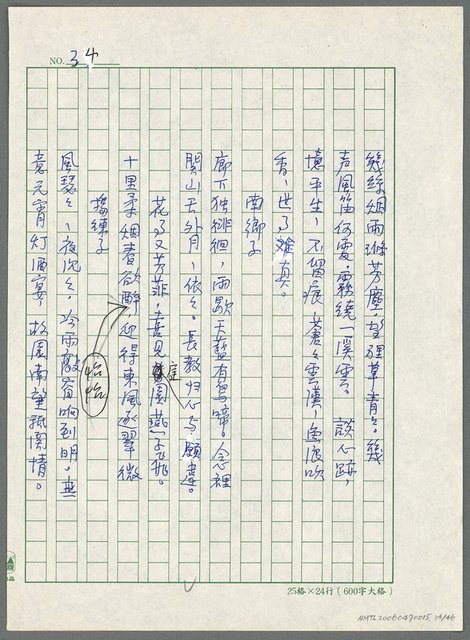 NO. 34
幾絲烟雨滌芳塵,望裡草青々。幾
声風笛何處,霧繞一溪雲。 談心跡,
憶平生,不留痕,蒼々雲漢,魚浪吹
香,世事難真。
南鄉子
廊下独徘徊,雨歇天藍有鳥啼。念裡
関山天外月,依々。長教归心与願違。
花事又芳菲,喜見庭園燕子飛。
十里柔烟春欲醉,怡怡迎得東風送翠微
搗練子
風瑟々,夜沉々,冷雨敲窗响到明。無
意元宵灯酒宴,故園南望抵関情。
25格×24行(600字大格)
NMTL20060470015 34/46